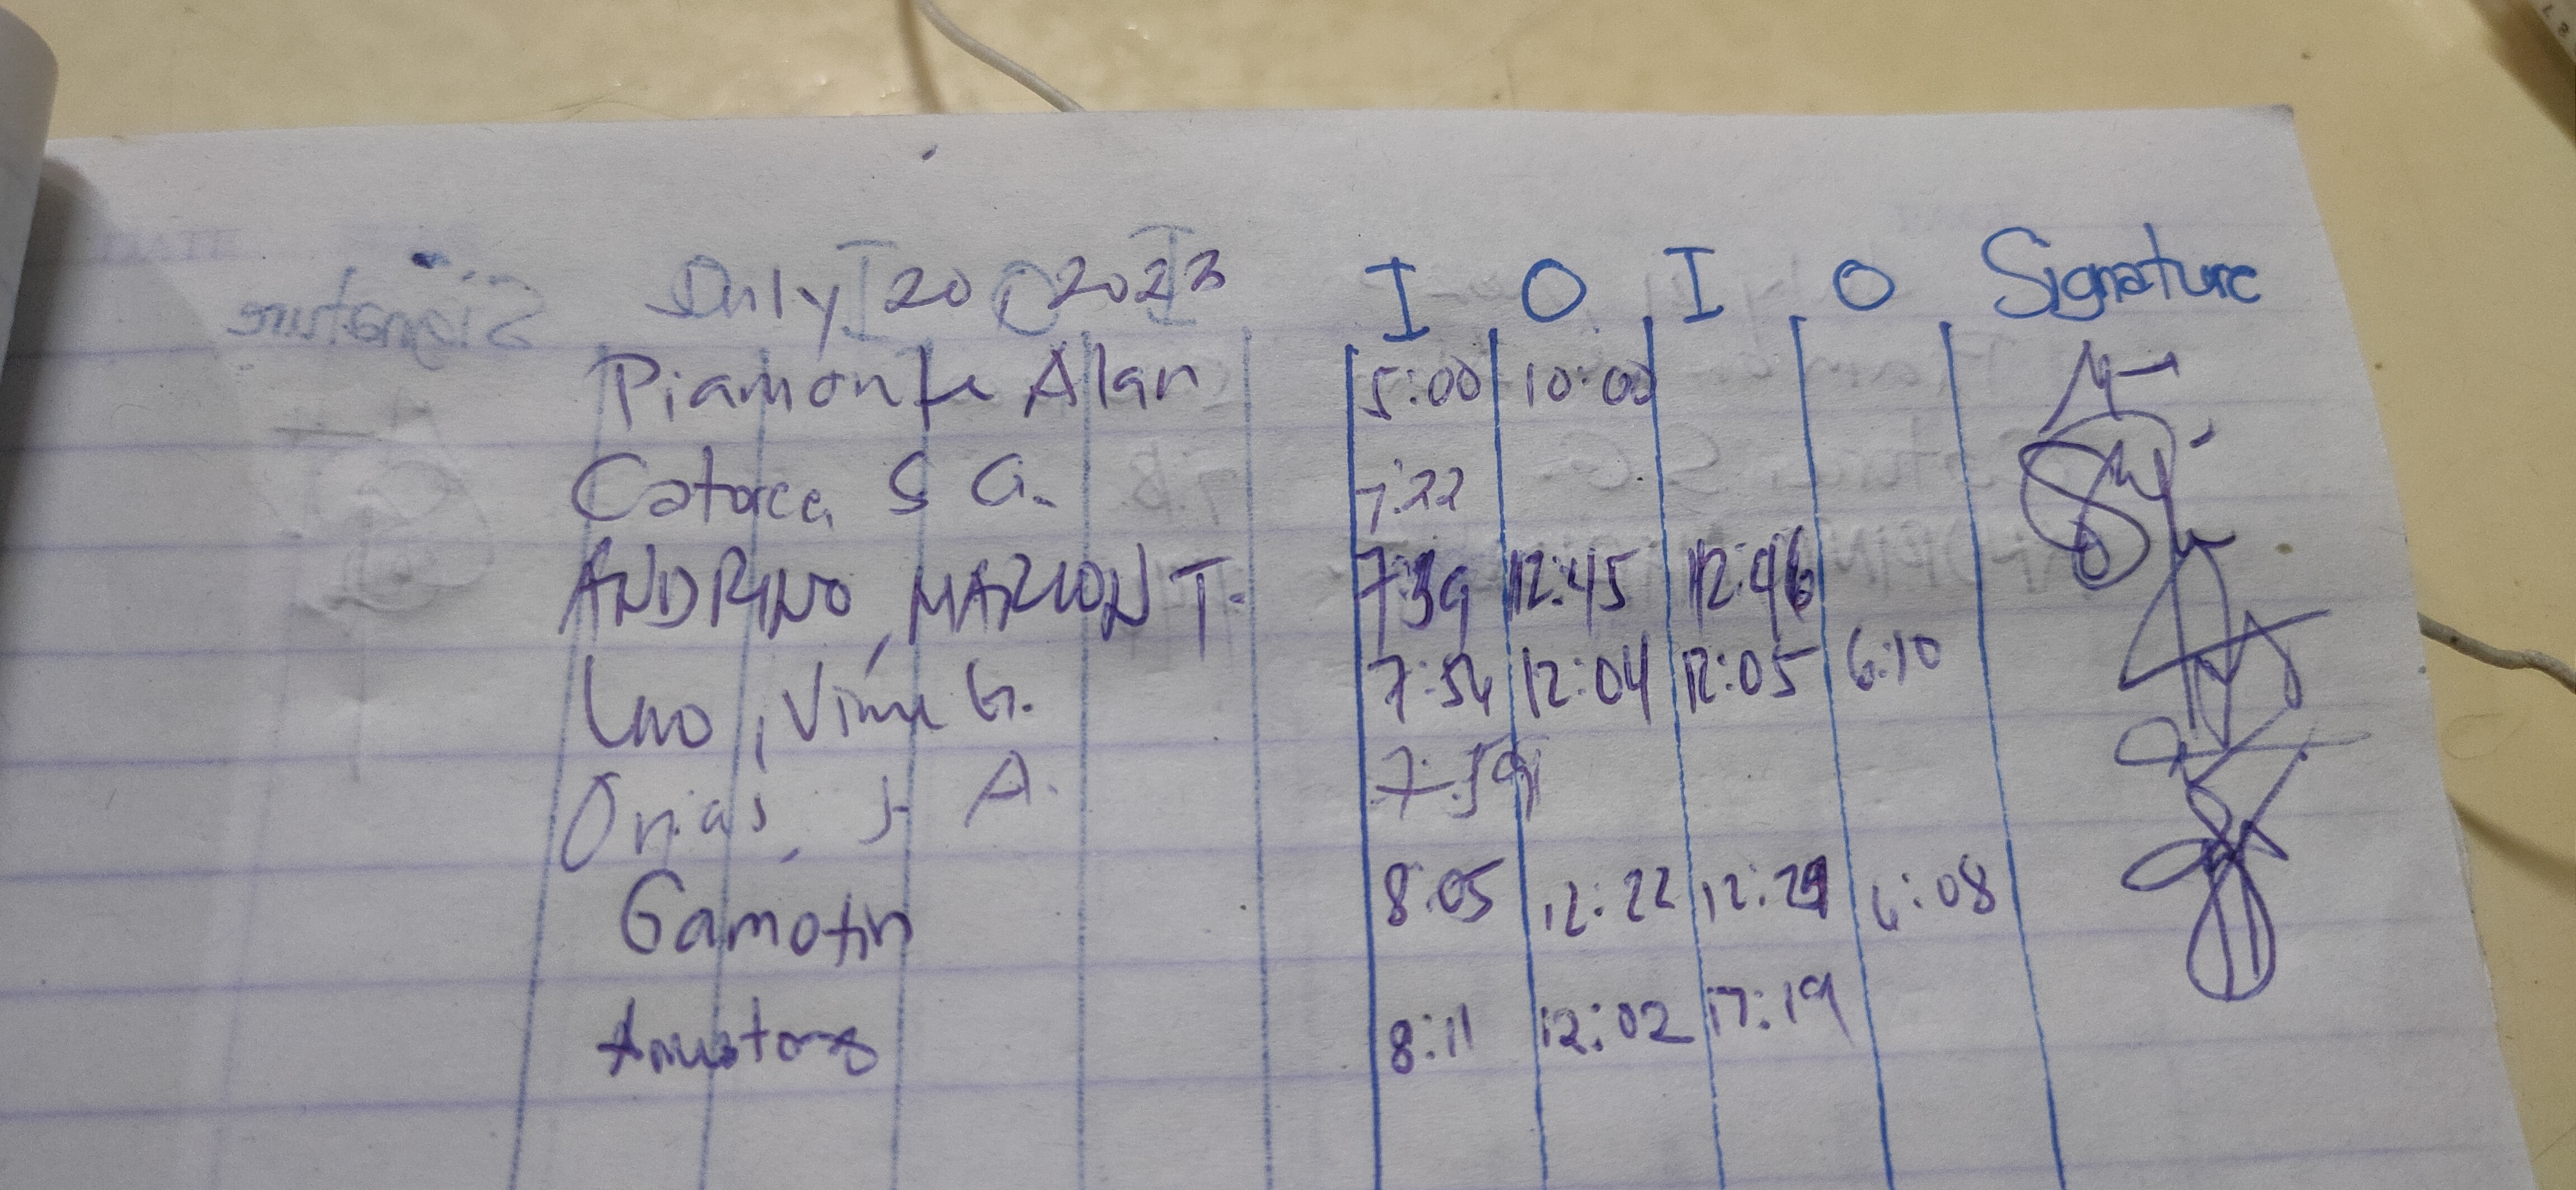 July 20, 2023 I O I O Signature
Piamonte Alan 5:00 10:00
Catorce S G. 7:22
ANDRINO, MARION T. 7:39 12:45 12:46
Vime G. 7:54 12:04 12:05 6:10
Orias, J. A. 7:59
Gamotin 8:05 12:22 12:29 6:08
8:11 12:02 17:19